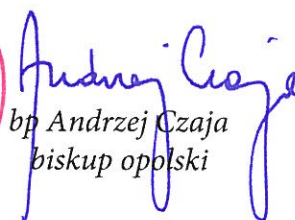 Andrzej Czaja
bp Andrzej Czaja
biskup opolski